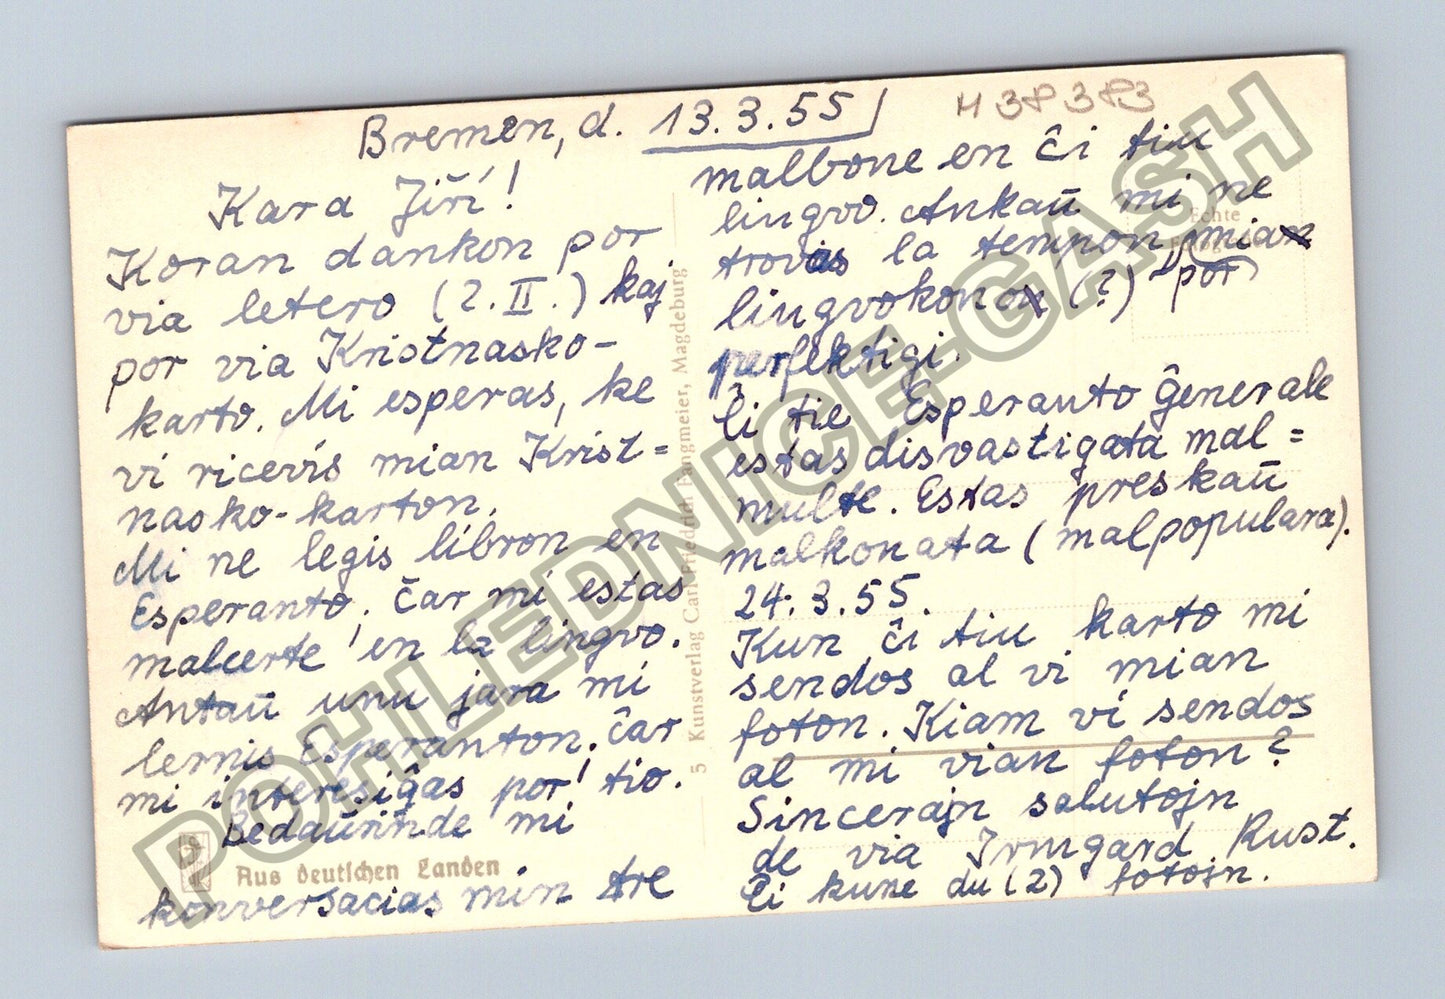 Bremen, d. 13.3.55
H 38383
Kara Jiří!
Koran dankon por
via letero (2.II.) kaj
por via Kristnasko-
karto. Mi esperas, ke
vi ricevis mian Krist=
nasko-karton.
Mi ne legis libron en
Esperanto, ĉar mi estas
malcerte en la lingvo.
Antaŭ unu jara mi
lernis Esperanton. ĉar
mi interesiĝas por tio.
Bedaŭrinde mi
konversacias min tre
malbone en ĉi tiu
lingvo. Ankaŭ mi ne
trovas la tempon mian
lingvokonon (?) "por
perfektigi.
Ĉi tie Esperanto ĝenerale
estas disvastigata mal=
multe. Estas preskaŭ
malkonata (malpopulara).
24.3.55.
Kun ĉi tiu karto mi
sendos al vi mian
foton. Kiam vi sendos
al mi vian foton?
Sincerajn salutojn
de via Irmgard Rust.
Ĉi kune du (2) fotojn.
Aus deutschen Landen
5 Kunstverlag Carl Friedrich Fangmeier, Magdeburg
Echte
POHLEDNICE-GASH